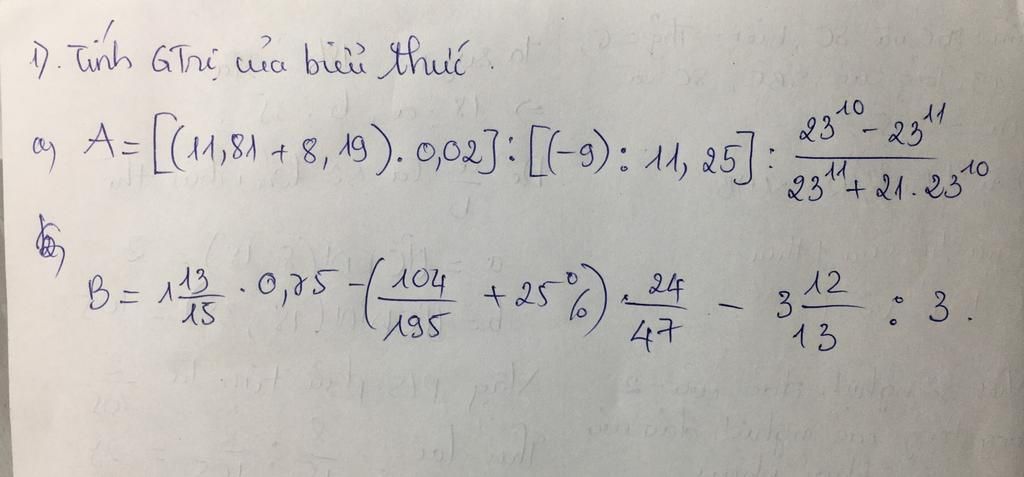 1). Tính GTrị của biểu thức.
a) A = [(11,81 + 8,19). 0,02] : [(-9) : 11,25] : \frac{23^{10} - 23^{11}}{23^{11} + 21. 23^{10}}
b)
B = 1\frac{13}{15} . 0,75 - (\frac{104}{195} + 25%) . \frac{24}{47} - 3\frac{12}{13} : 3.